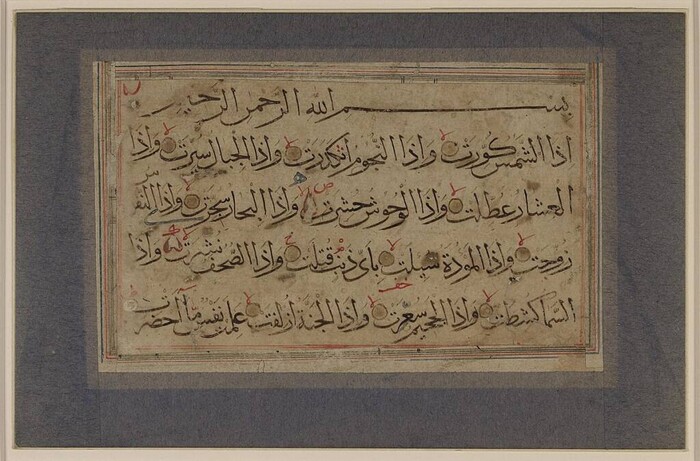 بسم الله الرحمن الرحيم
اذا الشمس كورت واذا النجوم انكدرت واذا الجبال سيرت واذا
العشار عطلت واذا الوحوش حشرت واذا البحار سجرت واذا النفوس
زوجت واذا الموءدة سيلت باي ذنب قتلت واذا الصحف نشرت واذا
السما كشطت واذا الجحيم سعرت واذا الجنة ازلفت علمت نفس ما احضرت